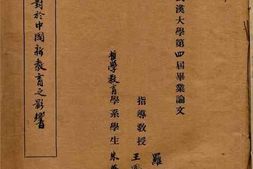 漢大學第四屆畢業論文
指導教授
羅
王
哲學教育學系學生 朱
對於中國新教育之影響